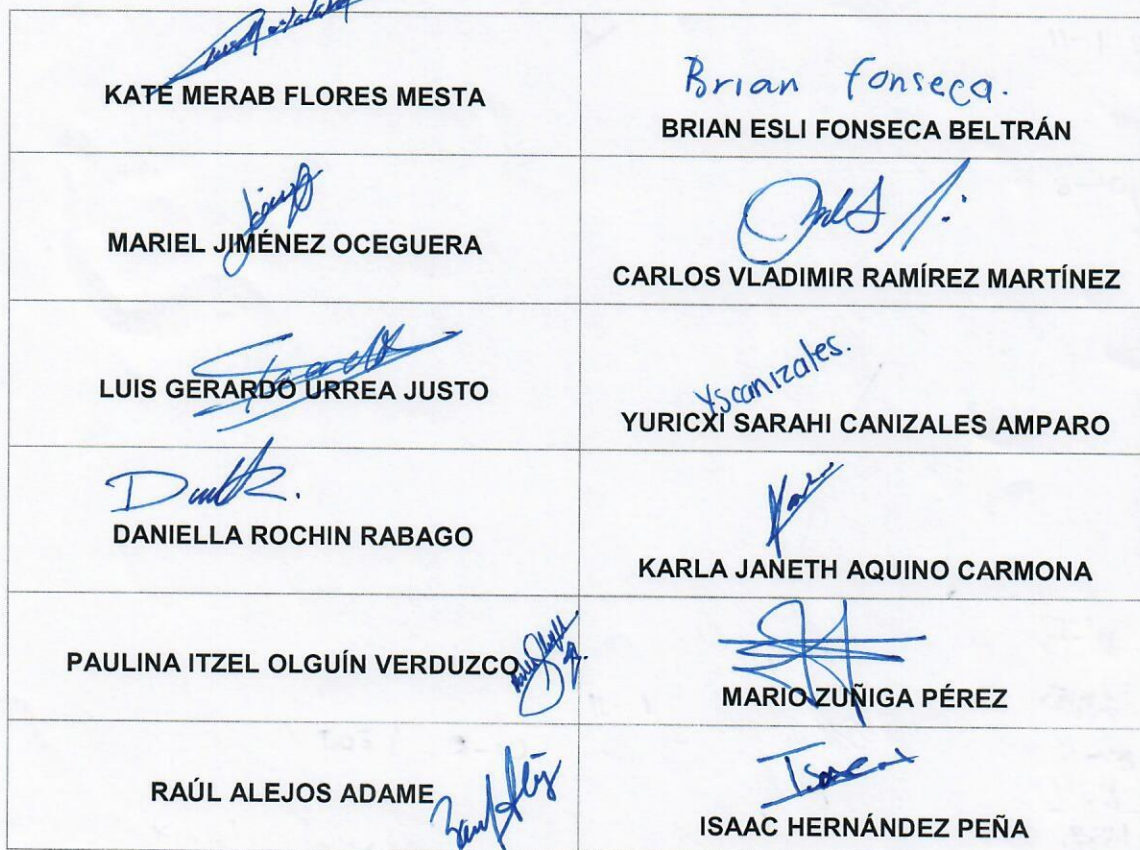 KATE MERAB FLORES MESTA
Brian fonseca.
BRIAN ESLI FONSECA BELTRÁN
MARIEL JIMÉNEZ OCEGUERA
CARLOS VLADIMIR RAMÍREZ MARTÍNEZ
LUIS GERARDO URREA JUSTO
Yscanizales.
YURICXI SARAHI CANIZALES AMPARO
DANIELLA ROCHIN RABAGO
KARLA JANETH AQUINO CARMONA
PAULINA ITZEL OLGUÍN VERDUZCO
MARIO ZUÑIGA PÉREZ
RAÚL ALEJOS ADAME
Isaac
ISAAC HERNÁNDEZ PEÑA